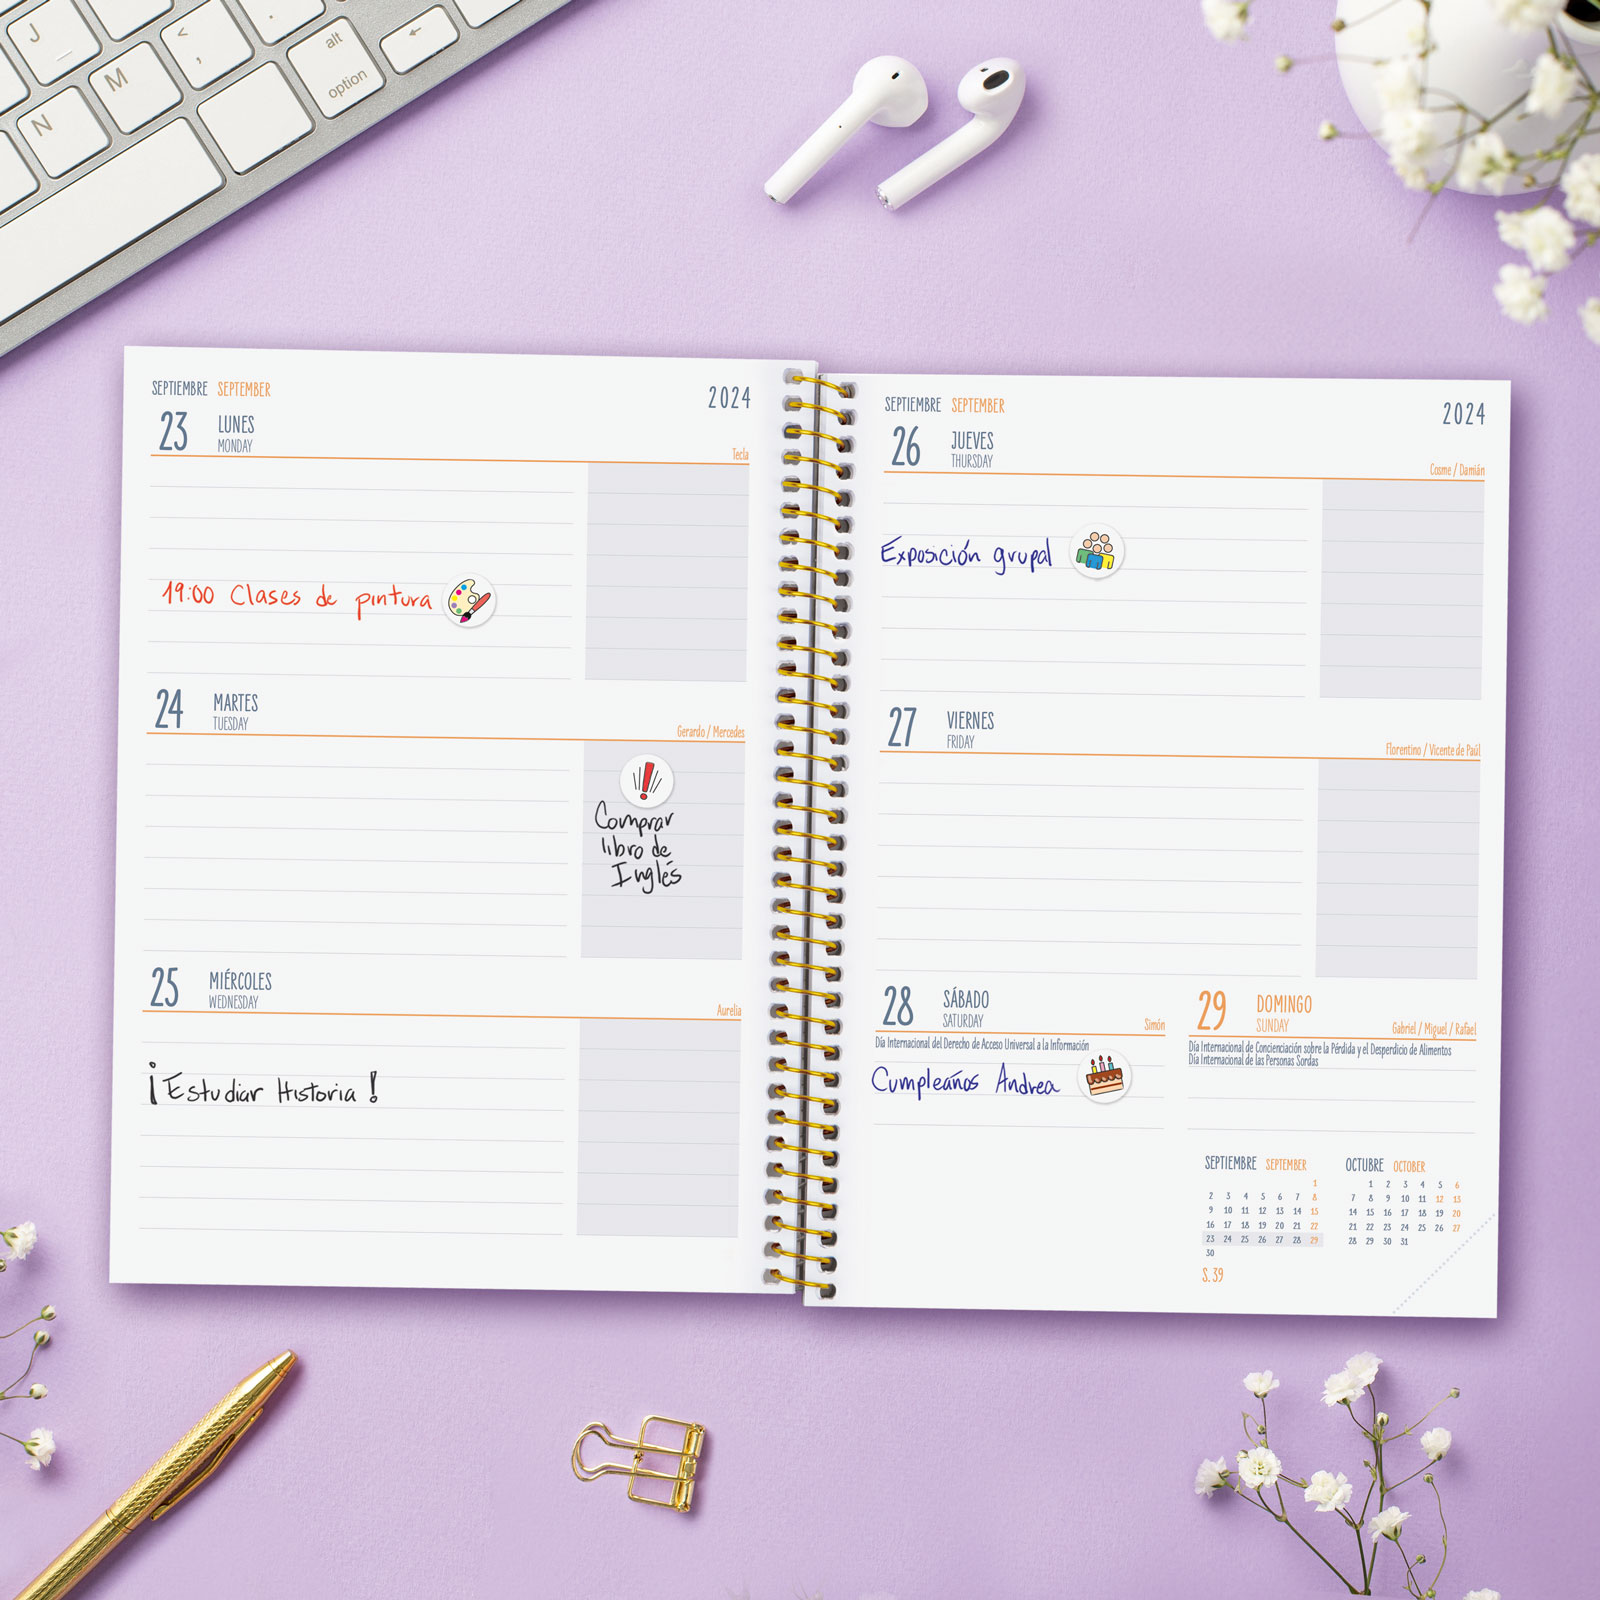 J
—
M
<
,
alt
option
←
N
SEPTIEMBRE SEPTEMBER
2024
23 LUNES
MONDAY
Tecla
19:00 Clases de pintura
24 MARTES
TUESDAY
Gerardo / Mercedes
Comprar
libro de
Inglés
25 MIÉRCOLES
WEDNESDAY
Aurelia
¡Estudiar Historia!
SEPTIEMBRE SEPTEMBER
2024
26 JUEVES
THURSDAY
Cosme / Damián
Exposición grupal
27 VIERNES
FRIDAY
Florentino / Vicente de Paúl
28 SÁBADO
SATURDAY
Simón
Día Internacional del Derecho de Acceso Universal a la Información
Cumpleaños Andrea
29 DOMINGO
SUNDAY
Gabriel / Miguel / Rafael
Día Internacional de Concienciación sobre la Pérdida y el Desperdicio de Alimentos
Día Internacional de las Personas Sordas
SEPTIEMBRE SEPTEMBER
1
2 3 4 5 6 7 8
9 10 11 12 13 14 15
16 17 18 19 20 21 22
23 24 25 26 27 28 29
30
S. 39
OCTUBRE OCTOBER
1 2 3 4 5 6
7 8 9 10 11 12 13
14 15 16 17 18 19 20
21 22 23 24 25 26 27
28 29 30 31